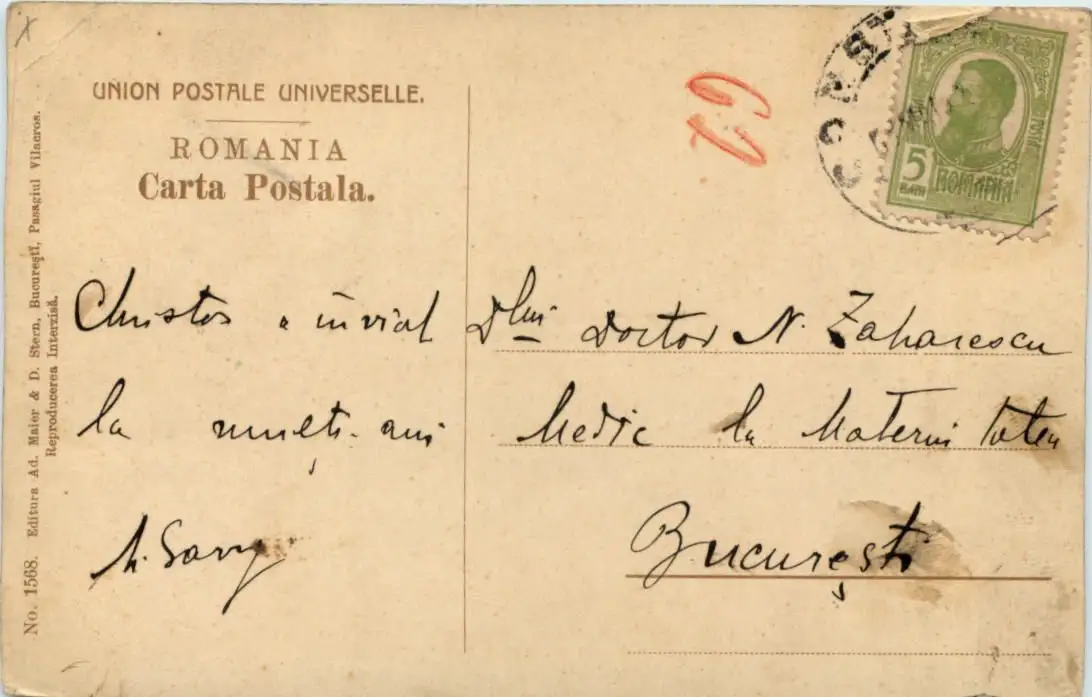 UNION POSTALE UNIVERSELLE.
ROMANIA
Carta Postala.
No. 1568. Editura Ad. Maier & D. Stern, Bucureştĭ, Pasagiul Vilacros.
Reproducerea Interzisă.
Christos a înviat
la mulţi ani
Dlui Doctor N. Zaharescu
Medic la Maternitatea
Bucureşti
5
BANI
ROMANIA